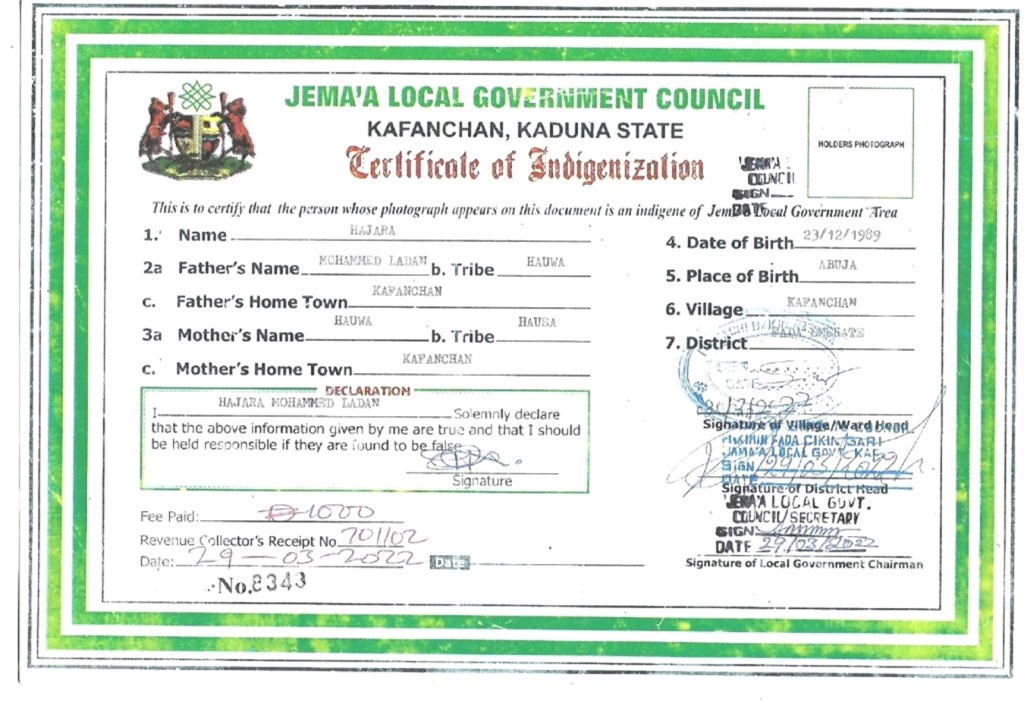 JEMA'A LOCAL GOVERNMENT COUNCIL
KAFANCHAN, KADUNA STATE
Certificate of Indigenization
HOLDERS PHOTOGRAPH
JEMA'A L
COUNCIL
SIGN
DATE
This is to certify that the person whose photograph appears on this document is an indigene of Jema'a Local Government Area
1. Name HAJARA
2a Father's Name MOHAMMED LADAN b. Tribe HAUWA
c. Father's Home Town KAFANCHAN
3a Mother's Name HAUWA b. Tribe HAUSA
c. Mother's Home Town KAFANCHAN
4. Date of Birth 23/12/1989
5. Place of Birth ABUJA
6. Village KAFANCHAN
7. District FADA EMERATE
DATE
Signature of Village/Ward Head
HAKIMIN FADA CIKIN GARI
JAMA'A LOCAL GOVT. KAF.
SIGN
DATE 29/03/2022
Signature of District Head
JEMA'A LOCAL GOVT.
COUNCIL/SECRETARY
SIGN
DATE 29/03/2022
Signature of Local Government Chairman
DECLARATION
I HAJARA MOHAMMED LADAN Solemnly declare
that the above information given by me are true and that I should
be held responsible if they are found to be false
Signature
Fee Paid: ₦1000
Revenue Collector's Receipt No 701102
Date: 29-03-2022 Date
No.8343